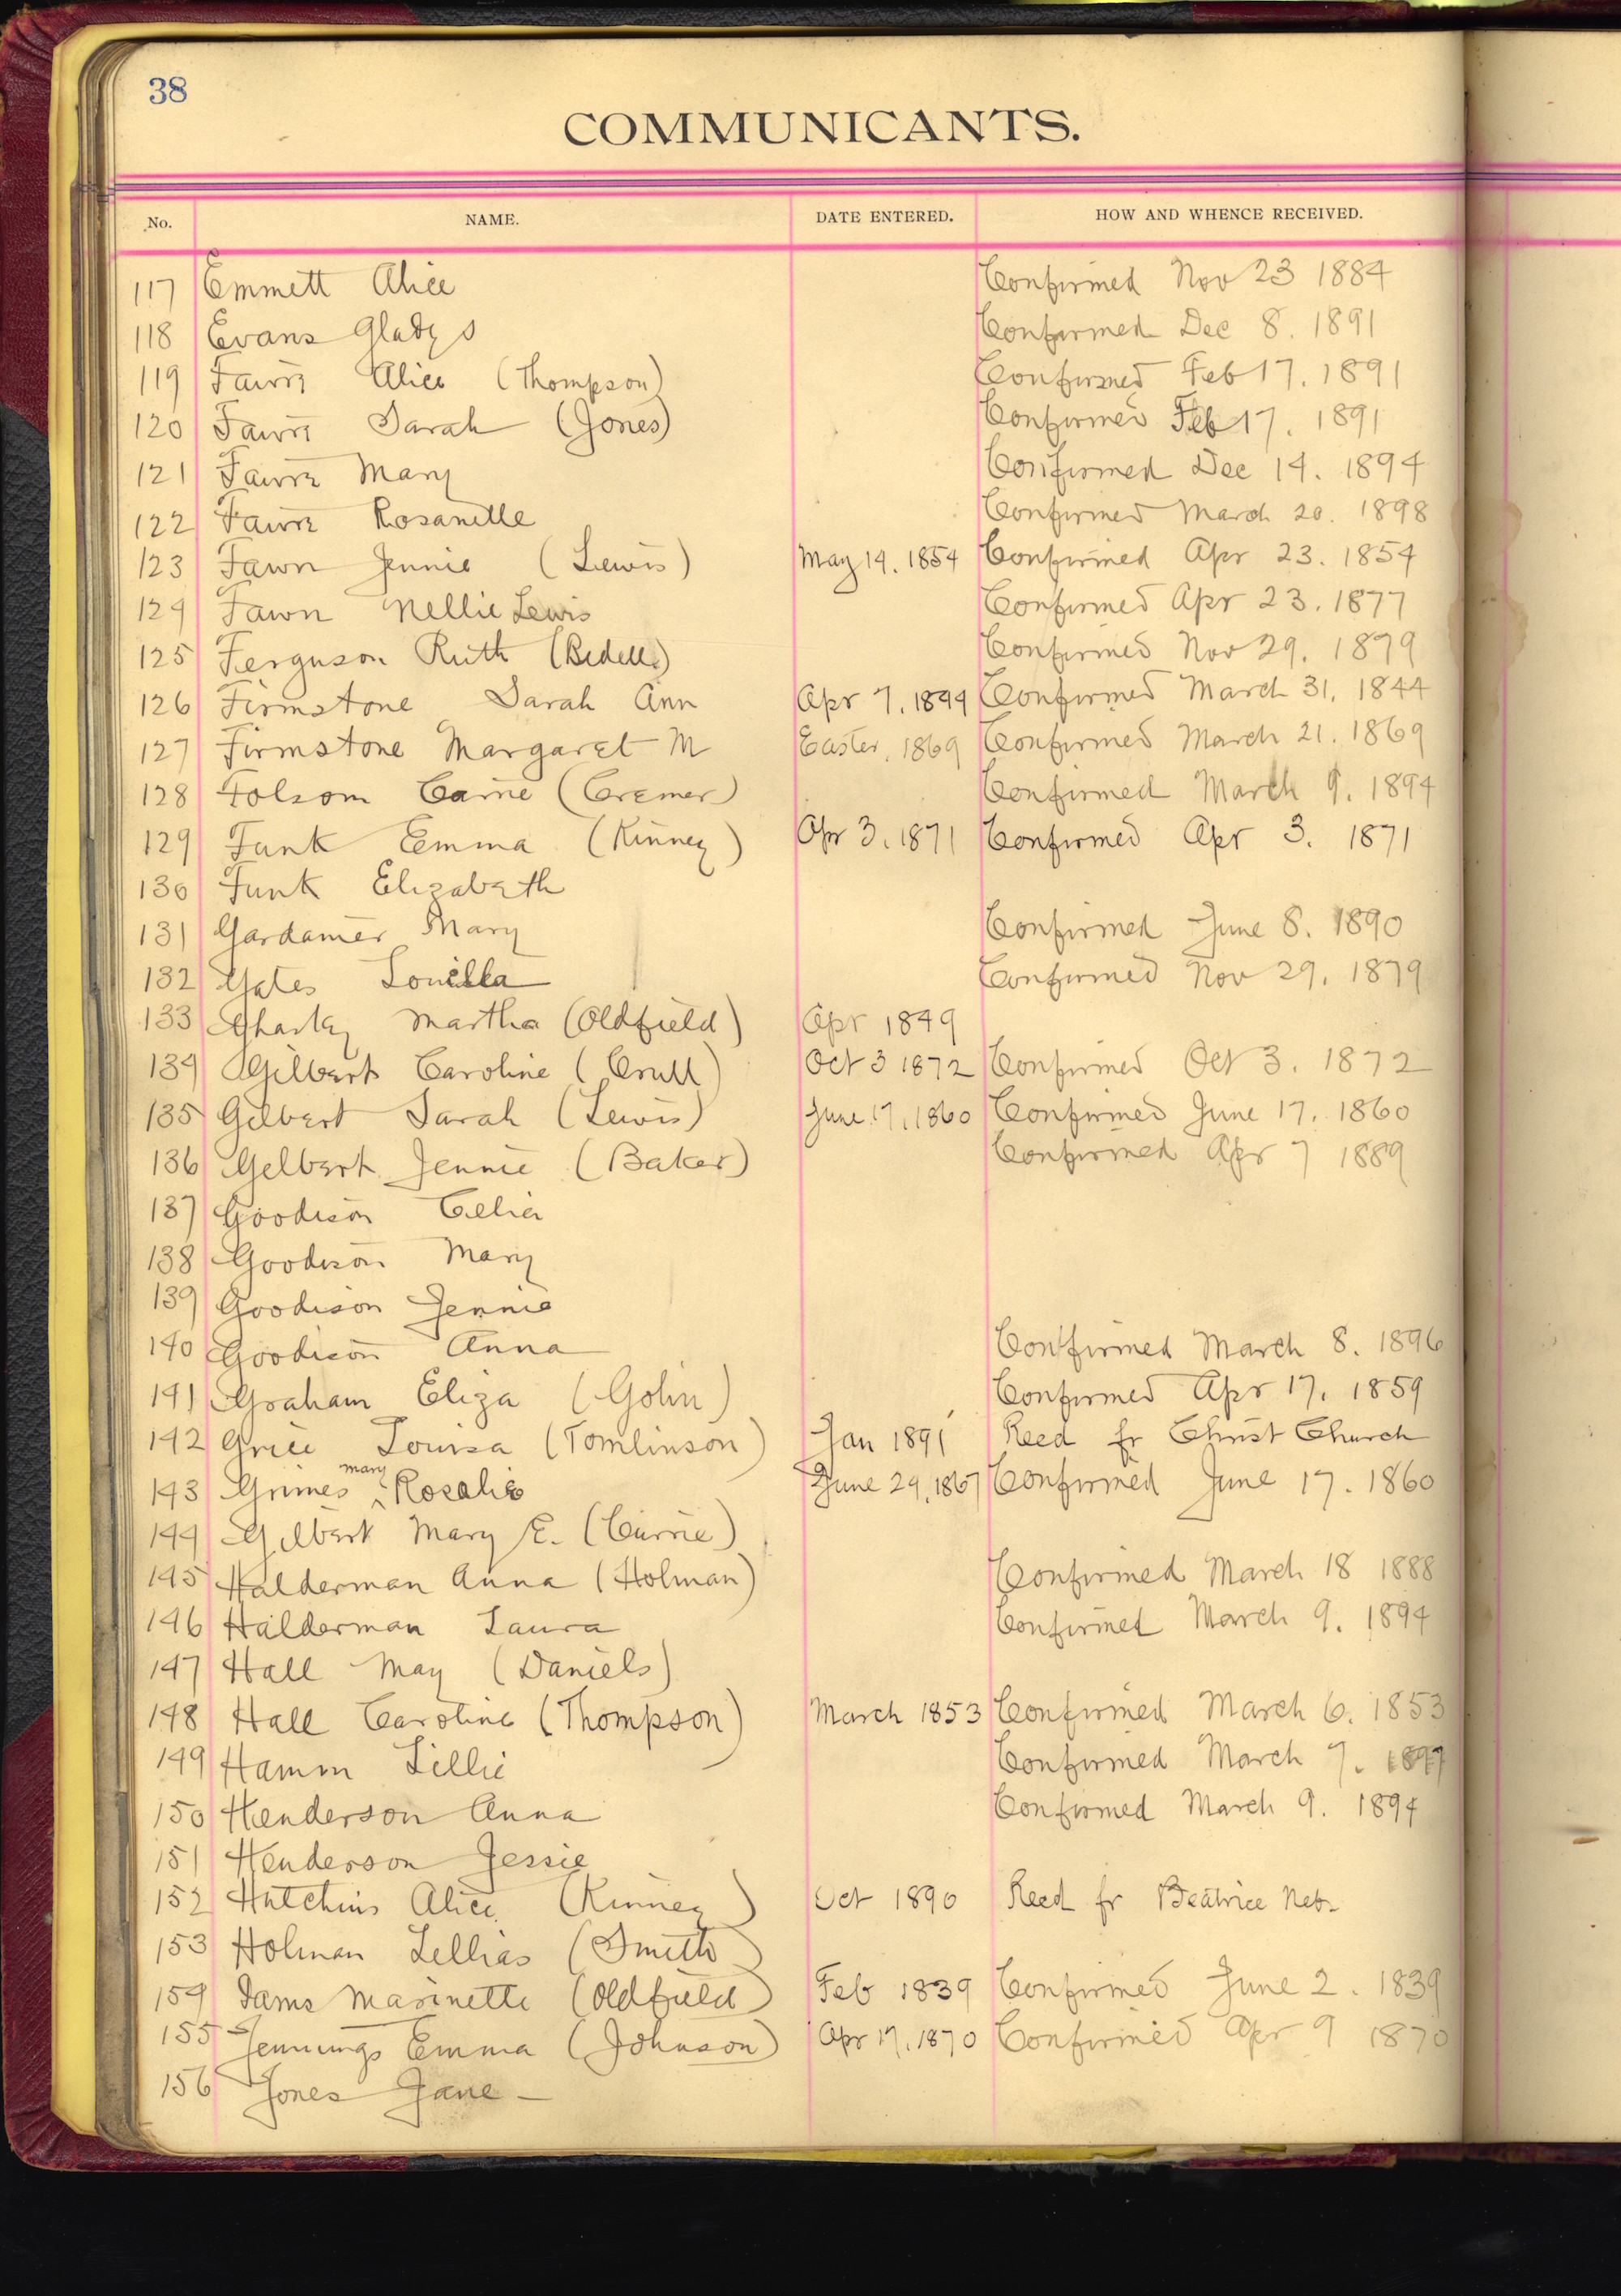 38
COMMUNICANTS.
No. NAME. DATE ENTERED. HOW AND WHENCE RECEIVED.
117 Emmett Alice Confirmed Nov 23 1884
118 Evans Gladys Confirmed Dec 8. 1891
119 Alice (Thompson) Confirmed Feb 17. 1891
120 Sarah (Jones) Confirmed Feb 17. 1891
121 Mary Confirmed Dec 14. 1894
122 Rosanelle Confirmed March 20. 1898
123 Fawn Jennie (Lewis) May 14. 1854 Confirmed Apr 23. 1854
124 Fawn Nellie Lewis Confirmed Apr 23. 1877
125 Ferguson Ruth (Bedell) Confirmed Nov 29. 1879
126 Firmstone Sarah Ann Apr 7. 1844 Confirmed March 31. 1844
127 Firmstone Margaret M Easter, 1869 Confirmed March 21. 1869
128 Folsom Carrie (Cremer) Confirmed March 9. 1894
129 Funk Emma (Kinney) Apr 3. 1871 Confirmed Apr 3. 1871
130 Funk Elizabeth
131 Gardamer Mary Confirmed June 8. 1890
132 Gates Louella Confirmed Nov 29. 1879
133 Gharky Martha (Oldfield) Apr 1849
134 Gilbert Caroline (Crull) Oct 3 1872 Confirmed Oct 3. 1872
135 Gilbert Sarah (Lewis) June 17. 1860 Confirmed June 17. 1860
136 Gilbert Jennie (Baker) Confirmed Apr 7 1889
137 Goodison Celia
138 Goodison Mary
139 Goodison Jennie
140 Goodison Anna Confirmed March 8. 1896
141 Graham Eliza (Golin) Confirmed Apr 17. 1859
142 Grice Louisa (Tomlinson) Jan 1891 Recd fr Christ Church
143 Grimes Mary ^ Rosalie June 29. 1867 Confirmed June 17. 1860
144 Gilbert Mary E. (Currie)
145 Halderman Anna (Holman) Confirmed March 18 1888
146 Halderman Laura Confirmed March 9. 1894
147 Hall May (Daniels)
148 Hall Caroline (Thompson) March 1853 Confirmed March 6. 1853
149 Hamm Lillie Confirmed March 7. 1897
150 Henderson Anna Confirmed March 9. 1894
151 Henderson Jessie
152 Hutchins Alice (Kinney) Oct 1890 Recd fr Beatrice Neb.
153 Holman Lellias (Smith)
154 Iams Marinette (Oldfield) Feb 1839 Confirmed June 2. 1839
155 Jennings Emma (Johnson) Apr 17. 1870 Confirmed Apr 9 1870
156 Jones Jane –